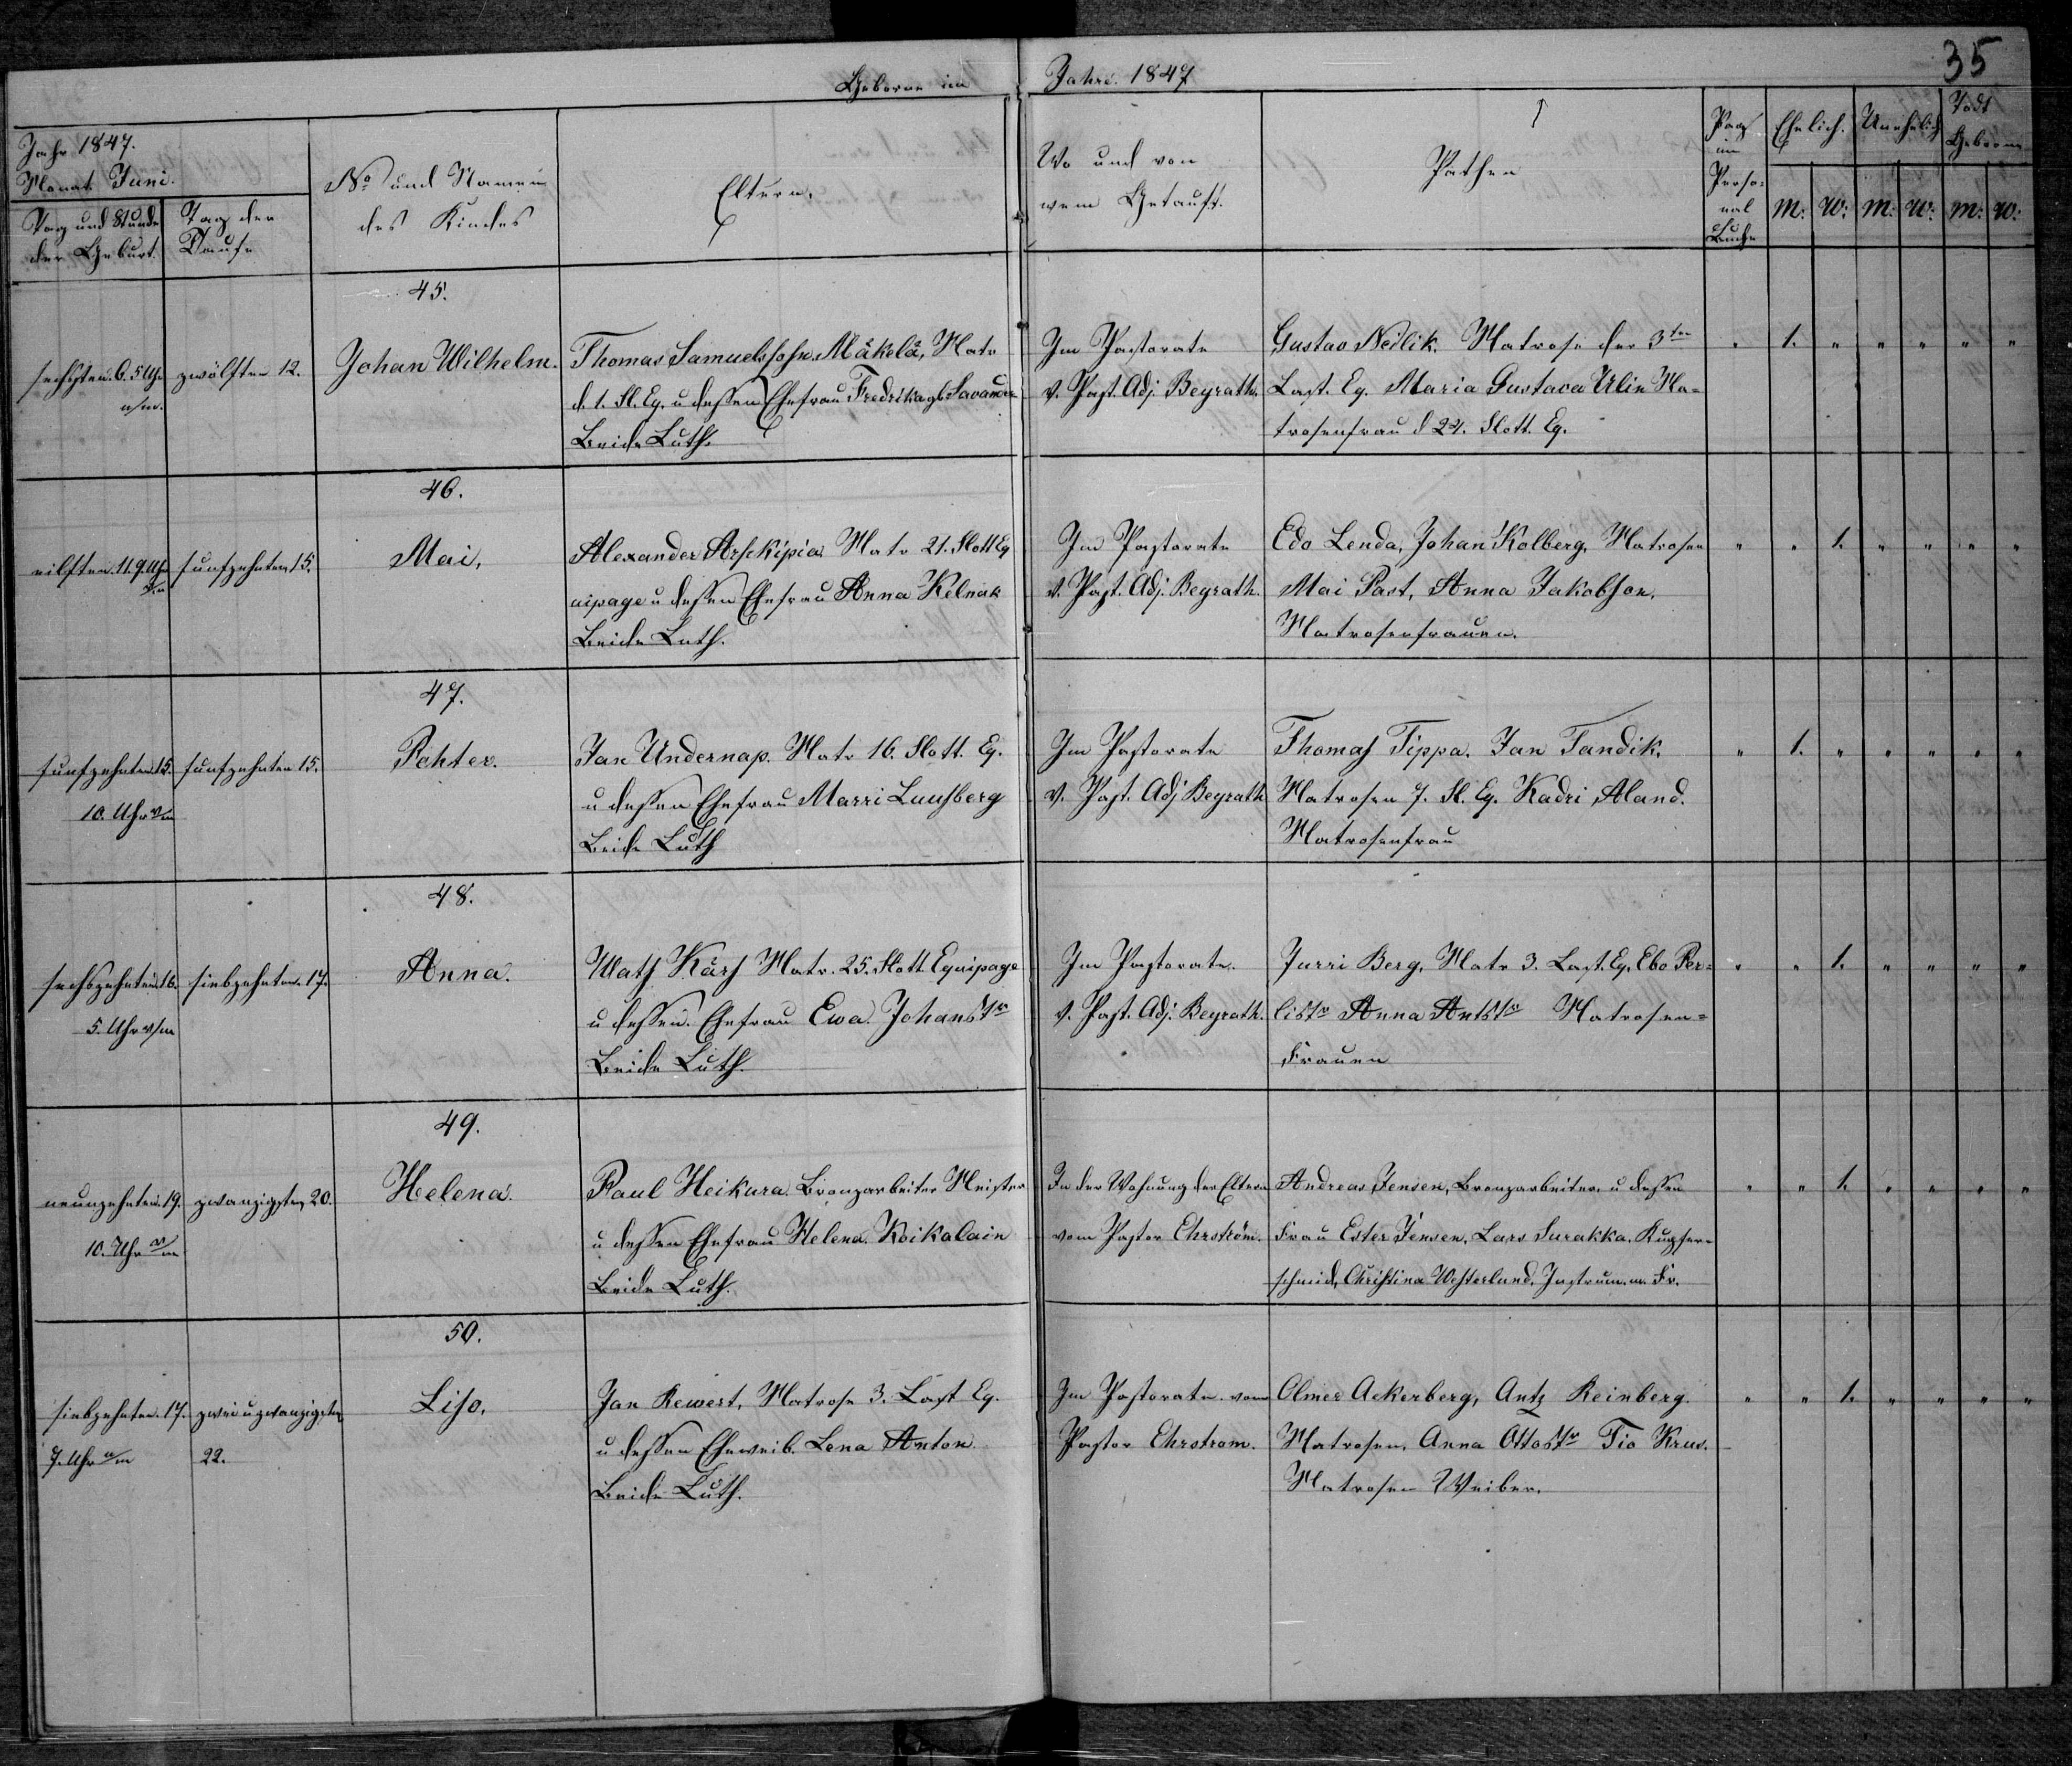 35
Geborne im Jahre 1847
Jahr 1847.
Monat Juni.
Tag und Stunde
der Geburt.
Tag der
Taufe
No und Namen
des Kindes
Eltern.
Wo und von
wem Getauft.
Pathen
Pag
im
Perso-
nal
Buche
Ehelich.
Unehelich
Todt
Geboren
m: w: m: w: m: w:
45.
sechsten 6. 5 Uhr
n/m.
zwölften 12.
Johan Wilhelm.
Thomas Samuelssohn Mäkelä, Matr
d. 1. Fl. Eq. u dessen Ehefrau Fredrika gb Savander
Beide Luth.
Im Pastorate
v. Past. Adj. Beyrath.
Gustav Nedlik. Matrose der 3ten
Last. Eq. Maria Gustava Ulin Ma-
trosenfrau d 24. Flott. Eq.
" 1. " " " " "
46.
eilften 11. 9 Uhr
funfzehnten 15.
Mai,
Alexander Arsckipia Matr 21. Flott Eq
uipage u dessen Ehefrau Anna Kelnak
Beide Luth.
Im Pastorate
v. Past. Adj. Beyrath.
Edo Lenda, Johan Kolberg, Matrosen
Mai Past, Anna Jakobson.
Matrosenfrauen.
" " 1. " " " "
47.
funfzehnten 15.
10. Uhr v/m
funfzehnten 15.
Pehter.
Jan Undernap. Matr 16. Flott. Eq.
u dessen Ehefrau Marri Luusberg
Beide Luth
Im Pastorate
v. Past. Adj Beyrath
Thomas Tippa. Jan Tandik,
Matrosen 7. Fl. Eq. Kadri Aland.
Matrosenfrau
" 1. " " " " "
48.
sechszehnten 16.
5. Uhr v/m
siebzehnten 17.
Anna.
Mats Kärs Matr. 25. Flott Equipage
u dessen Ehefrau Ewa Johanstr
Beide Luth.
Im Pastorate.
v. Past. Adj. Beyrath.
Jurri Berg, Matr 3. Last. Eq. Ebo Per-
listr Anna Antstr Matrosen-
Frauen
" " 1. " " " "
49.
neunzehnten 19.
10. Uhr v/m
zwanzigsten 20.
Helena.
Paul Heikura Bronzarbeiter Meister
u dessen Ehefrau Helena Koikalain
Beide Luth.
In der Wohnung der Eltern
vom Pastor Ehrström.
Andreas Jensen, Bronzarbeiter, u dessen
Frau Ester Jensen, Lars Surakka, Kupfer-
schmid, Christina Westerlund, Instrum. m. Fr.
" " 1. " " " "
50.
siebzehnten 17.
7. Uhr v/m
zwei u zwanzigsten
22.
Liso,
Jan Rewert, Matrose 3. Last Eq.
u dessen Eheweib Lena Anton
Beide Luth.
Im Pastorate vom
Pastor Ehrstrom.
Olmer Ackerberg, Antz Reinberg.
Matrosen, Anna Ottostr Tio Krus.
Matrosen Weiber.
" " 1. " " " "